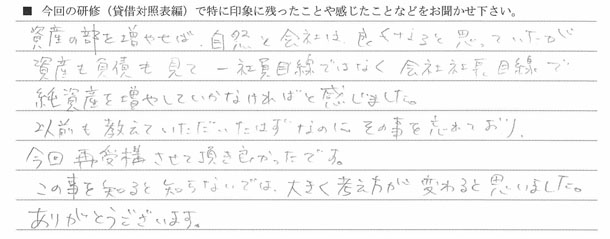 ■ 今回の研修（貸借対照表編）で特に印象に残ったことや感じたことなどをお聞かせ下さい。
資産の部を増やせば、自然と会社は、良くなると思っていたが
資産も負債も見て一社員目線ではなく会社社長目線で
純資産を増やしていかなければと感じました。
以前も教えていただいたはずなのに、その事を忘れており、
今回再受構させて頂き良かったです。
この事を知ると知らないでは、大きく考え方が変わると思いました。
ありがとうございます。